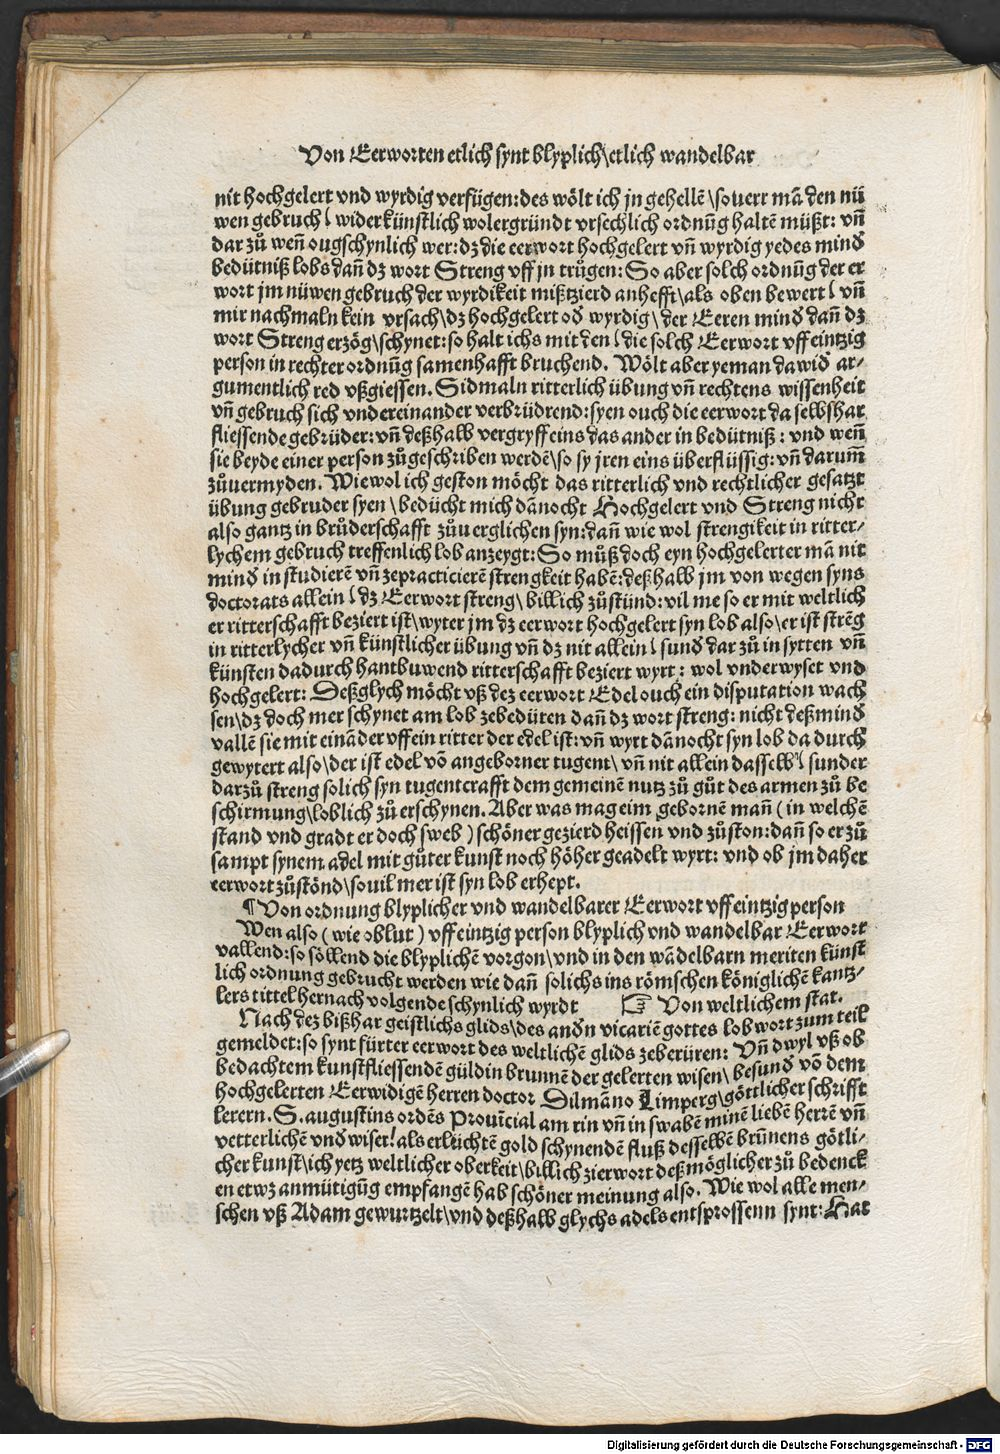 Von Eerworten etlich synt blyplich\etlich wandelbar
nit hochgelert vnd wyrdig verfügen:des wölt ich jn gehellē\souerr mā den nü
wen gebruch⟨ widerkünstlich wolergründt vrsechlich ordnūg haltē müßt: vn̄
dar zů wen̄ ougschynlich wer:dz die eerwort hochgelert vn̄ wyrdig yedes mind
bedütniß lobs dan̄ dz wort Streng vff jn trůgen:So aber solch ordnūg der er
wort jm nüwen gebruch der wyrdikeit mißtzierd anhefft\als oben bewert⟨ vn̄
mir nachmaln kein vrsach\dz hochgelert od wyrdig\der Eeren mind dan̄ dz
wort Streng erzög\schynet:so halt ichs mit den⟨die solch Eerwort vff eintzig
person in rechter ordnūg samenhafft bruchend. Wölt aber yeman da wid ar⸗
gumentlich red vßgiessen. Sidmaln ritterlich übung vn̄ rechtens wissenheit
vn̄ gebruch sich vndereinander verbrüdrend:syen ouch die eerwort da selbshar
fliessende gebrüder:vn̄ deßhalb vergryff eins das ander in bedütniß: vnd wen̄
sie beyde einer person zůgeschriben werdē\so sy jren eins überflüssig:vn̄ darum̄
zůuermyden. Wiewol ich geston möcht das ritterlich vnd rechtlicher gesatzt
übung gebruder syen\bedücht mich dānocht Hochgelert vnd Streng nicht
also gantz in brůderschafft zůuerglichen syn:dan̄ wie wol strengikeit in ritter⸗
lychem gebruch treffenlich lob anzeygt:So můß doch eyn hochgelerter mā nit
mind in studierē vn̄ zepracticierē strengkeit habē:deßhalb jm von wegen syns
doctorats allein⟨dz Eerwort streng\billich zůstünd:vil me so er mit weltlich
er ritterschafft beziert ist\wyter jm dz eerwort hochgelert syn lob also\er ist strēg
in ritterlycher vn̄ künstlicher übung vn̄ dz nit allein⟨sund dar zů in sytten vn̄
künsten dadurch hantbuwend ritterschafft beziert wyrt: wol vnderwyset vnd
hochgelert: Deßglych möcht vß dez eerwort Edel ouch ein disputation wach
sen\dz doch mer schynet am lob zebedüten dan̄ dz wort streng: nicht deßmind
vallē sie mit eināder vff ein ritter der edel ist:vn̄ wyrt dānocht syn lob da durch
gewytert also\der ist edel vō angeborner tugent\vn̄ nit allein dasselb⟨sunder
darzů streng solich syn tugentcrafft dem gemeinē nutz zů gůt des armen zů be
schirmung\loblich zů erschynen. Aber was mag eim gebornē man̄ (in welchē
stand vnd gradt er doch sweb) schöner gezierd heissen vnd zůston:dan̄ so er zů
sampt synem adel mit gůter kunst noch höher geadelt wyrt: vnd ob jm daher
eerwort zůstönd\souil mer ist syn lob erhept.
¶Von ordnung blyplicher vnd wandelbarer Eerwort vff eintzig person
Wen also (wie oblut) vff eintzig person blyplich vnd wandelbar Eerwort
vallend:so söllend die blyplichē vorgon\vnd in den wādelbarn meriten künst
lich ordnung gebrucht werden wie dan̄ solichs ins römschen königlichē kantz⸗
lers tittel hernach volgende schynlich wyrdt ☞ Von weltlichem stat.
Nach dez bißhar geistlichs glids\des andn vicariē gottes lobwort zum teil
gemeldet:so synt fürter eerwort des weltlichē glids zeberüren: Vn̄ dwyl vß ob
bedachtem kunstfliessendē güldin brunnē der gelerten wisen\besund vō dem
hochgelerten Eerwidigē herren doctor Dilmāno Limperg\göttlicher schrifft
lerern. S. augustins ordēs Prouīcial am rin vn̄ in swabē minē liebē herrē vn̄
vetterlichē vnd wiser!als erlüchtē gold schynendē fluß desselbē brūnens götli⸗
cher kunst\ich yetz weltlicher oberkeit\billich zierwort deß möglicher zů bedenck
en etwz anmütigūg empfangē hab schöner meinung also. Wie wol alle men⸗
schen vß Adam gewurtzelt\vnd deßhalb glychs adels entsprossenn synt:Hat
Digitalisierung gefördert durch die Deutsche Forschungsgemeinschaft - DFG